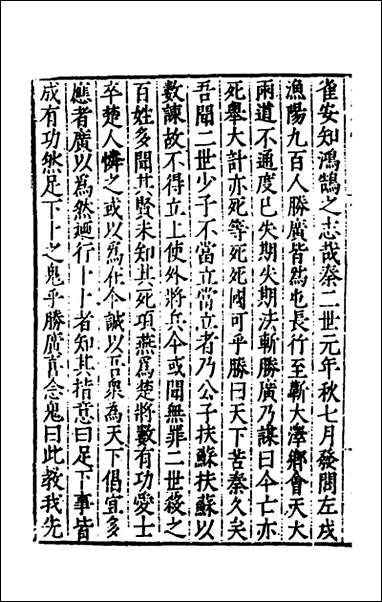 雀安知鴻鵠之志哉秦二世元年秋七月發閭左戍
漁陽九百人勝廣皆為屯長行至蘄大澤鄉會天大
雨道不通度已失期失期法斬勝廣乃謀曰今亡亦
死舉大計亦死等死死國可乎勝曰天下苦秦久矣
吾聞二世少子不當立當立者乃公子扶蘇扶蘇以
數諫故不得立上使外將兵今或聞無罪二世殺之
百姓多聞其賢未知其死項燕為楚將數有功愛士
卒楚人憐之或以為在今誠以吾衆為天下倡宜多
應者廣以為然廼行卜卜者知其指意曰足下事皆
成有功然足下卜之鬼乎勝廣喜念鬼曰此教我先